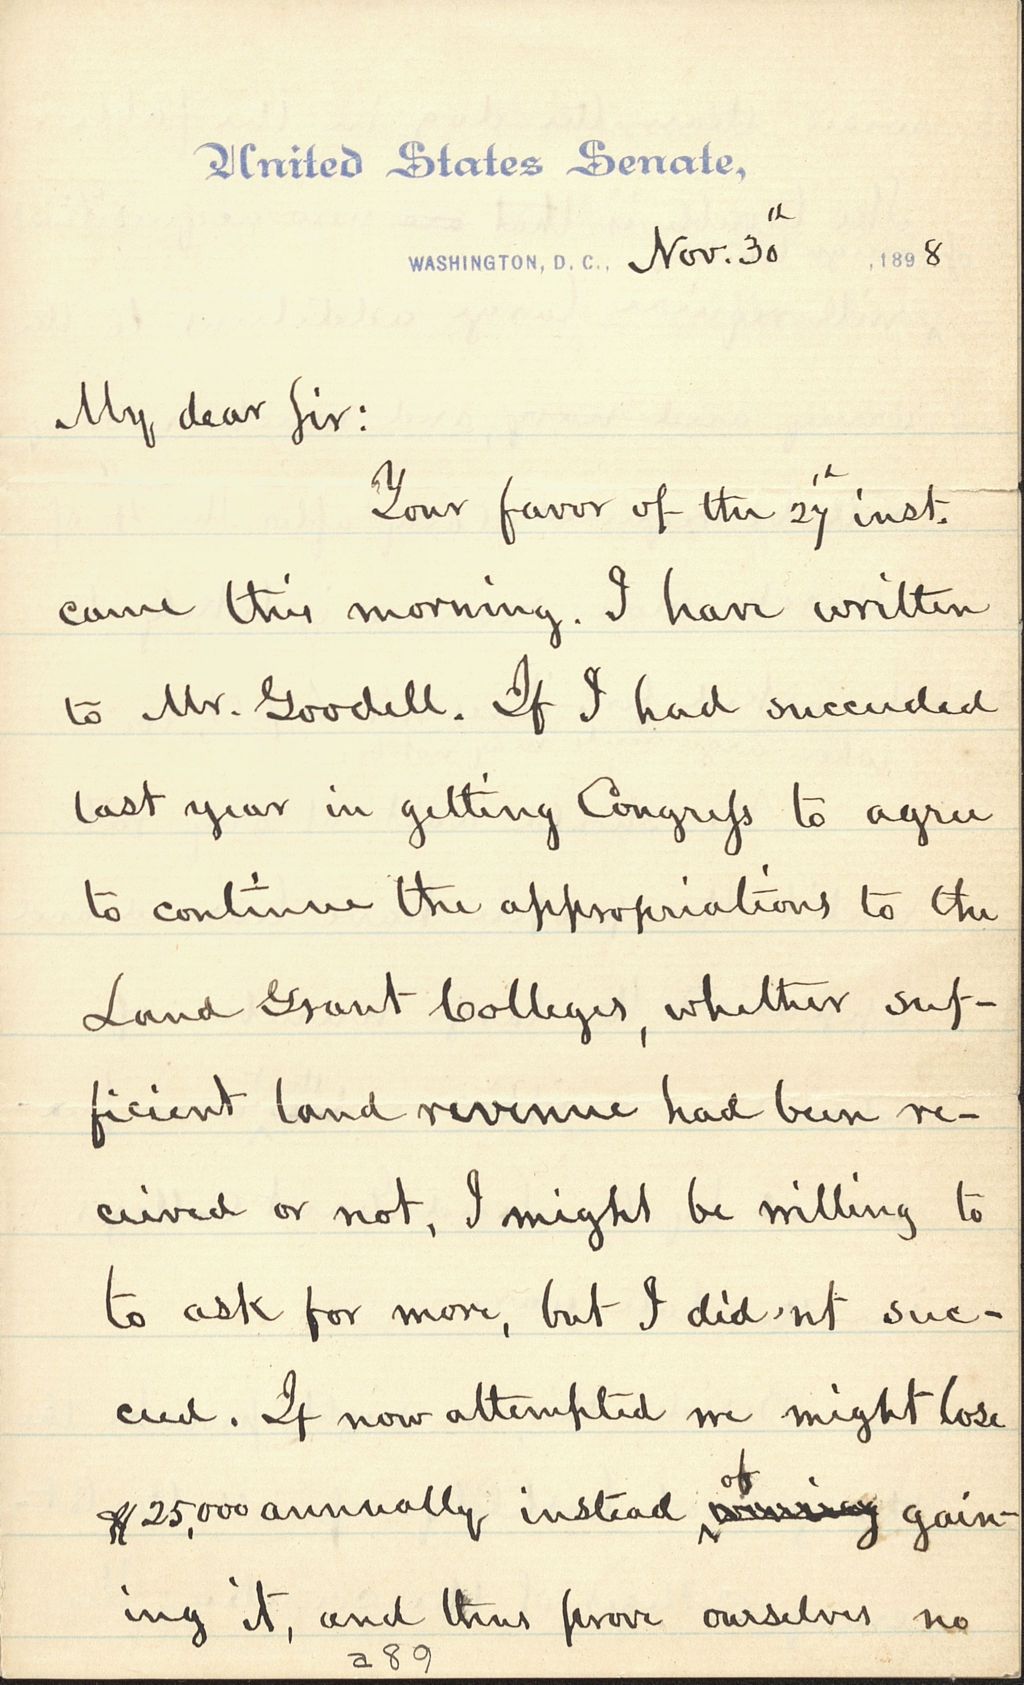 United States Senate,
WASHINGTON, D. C., Nov. 30th, 1898
My dear Sir:
Your favor of the 27th inst.
came this morning. I have written
to Mr. Goodell. If I had succeeded
last year in getting Congress to agree
to continue the appropriations to the
Land Grant Colleges, whether suf-
ficient land revenue had been re-
ceived or not, I might be willing to
to ask for more, but I did'nt suc-
ceed. If now attempted we might lose
$25,000 annually instead of gain-
ing it, and thus prove ourselves no
a89